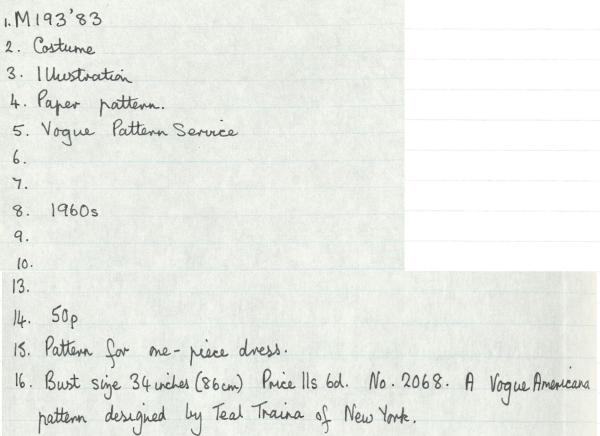 1. M193'83
2. Costume
3. Illustration
4. Paper pattern.
5. Vogue Pattern Service
6.
7.
8. 1960s
9.
10.
13.
14. 50p
15. Pattern for one-piece dress.
16. Bust size 34 inches (86cm) Price 11s 6d. No. 2068. A Vogue Americana
pattern designed by Teal Traina of New York.